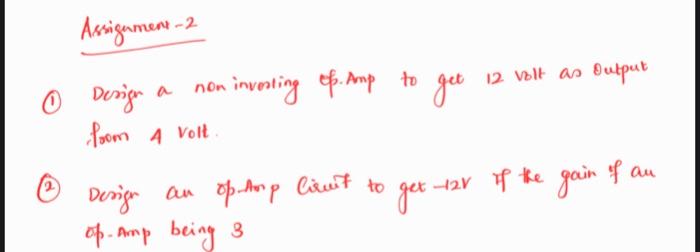 Assignment-2
① Design a non inverting Op.Amp to get 12 Volt as Output
from 4 Volt.
② Design an Op-Amp Circuit to get -12V If the gain of an
Op-Amp being 3